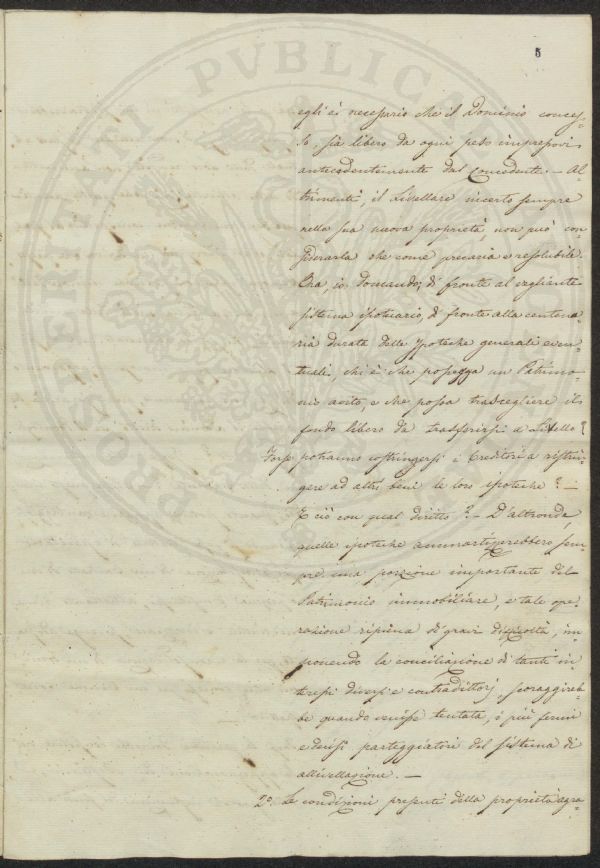 5
egli è necessario che il Dominio conces-
so, sia libero da ogni peso impostovi
antecedentemente dal Concedente. — Al-
trimenti, il Livellare incerto sempre
nella sua nuova proprietà, non può con-
siderarla che come precaria e resolubile.
Ora, io domando, di fronte al vegliante
sistema ipotecario, di fronte alla centena-
ria durata delle Ipoteche generali even-
tuali, chi è che possegga un Patrimo-
nio avito, e che possa trascegliere il
fondo libero da trasferirsi a Livello?
Forse potranno costringersi i Creditori a ristrin-
gere ad altri beni le loro ipoteche? —
E ciò con qual diritto? — D'altronde,
quelle ipoteche ammortizzerebbero sem-
pre una porzione importante del
Patrimonio immobiliare, e tale ope-
razione ripiena di gravi difficoltà, im-
ponendo la conciliazione di tanti in-
teressi diversi e contradittorj, scoraggireb-
be quando venisse tentata, i più fermi
e decisi parteggiatori del sistema di
allivellazione. —
2º. Le condizioni presenti della proprietà agra-
PROSPERITATI PUBLICAE